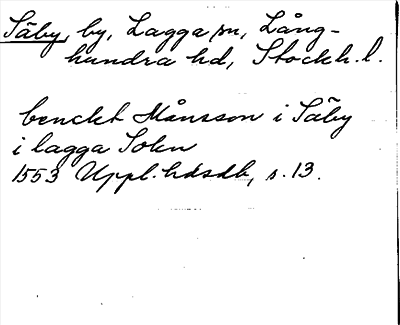 Säby, by, Lagga sn, Lång-
hundra hd, Stockh. l.
benckt Månsson i Säby
i lagga Sokn
1553 Uppl. hdsdb, s. 13.